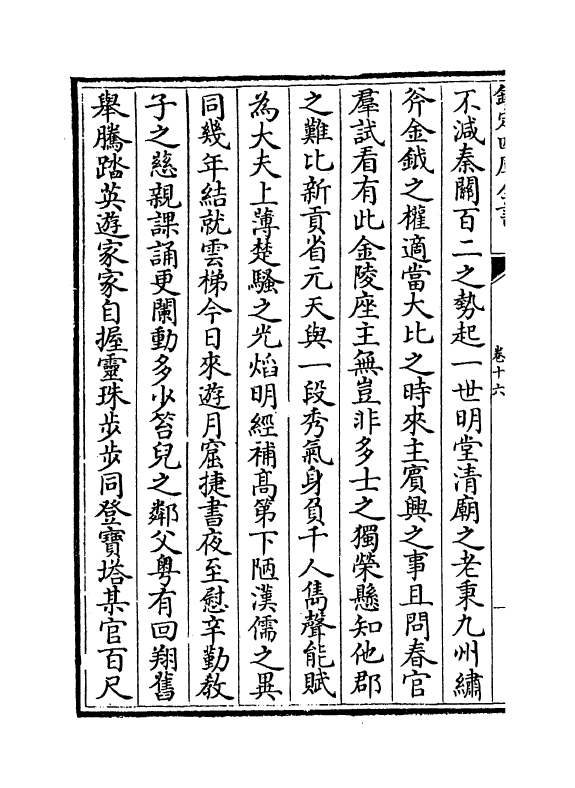 欽定四庫全書
卷十六
不減秦關百二之勢起一世明堂清廟之老秉九州繡
斧金鉞之權適當大比之時來主賓興之事且問春官
羣試看有此金陵座主無豈非多士之獨榮懸知他郡
之難比新貢省元天與一段秀氣身負千人雋聲能賦
為大夫上薄楚騷之光熖明經補髙第下陋漢儒之異
同幾年結就雲梯今日來遊月窟捷書夜至慰辛勤教
子之慈親課誦更闌動多少笞兒之鄰父粤有回翔舊
舉騰踏英遊家家自握靈珠步步同登寶塔某官百尺